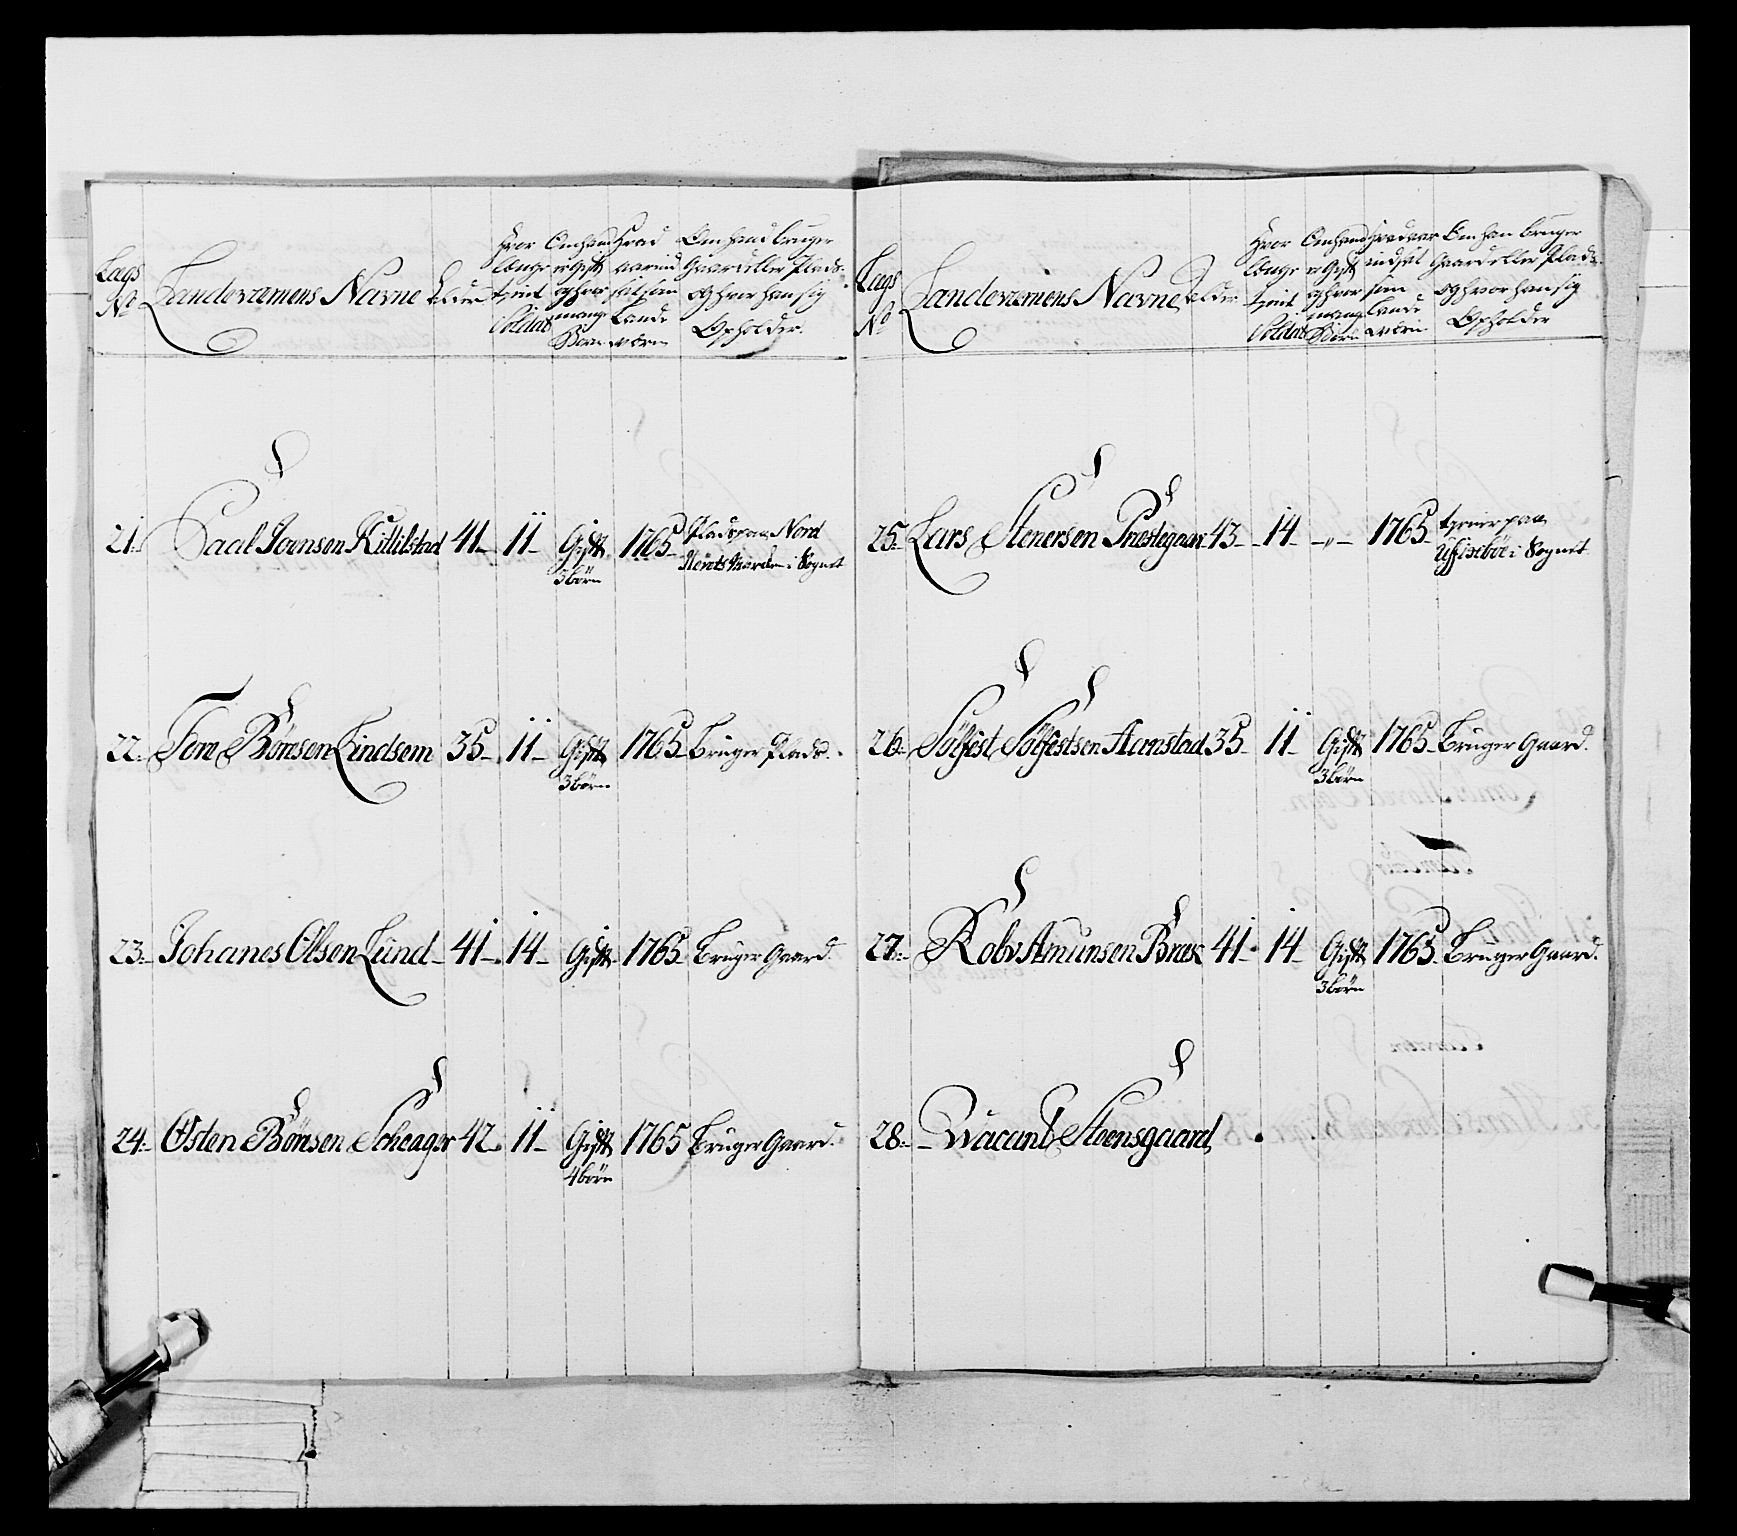 Lægs No
Landeværnens Navne
Alder
Hvor længe tient Soldat
Om hand er Gift og hvor mange Børn
Hvad Aar ind sat som Lande wærn
Om hand bruger Gaard eller Plads og hvor han sig Opholder.
21. Paal Joensen Killilstad 41 11 Gift 3 børn 1765 Pladspaa Nord i Sognet
22. Tore Børnsen Lindsem 35 11 Gift 3 børn 1765 Bruger Plads.
23. Johanes Olsen Lund 41 14 Gift 1765 Bruger Gaard.
24. Østen Børnsen Scheager 42 11 Gift 4 børn 1765 Bruger Gaard.
Lægs No
Landeværnens Navne
Alder
Hvor længe tient Soldat
Om hand er Gift og hvor mange Børn
Hvad aar indsat som Lande wærn
Om han bruger Gaard eller Plads og hvor han sig Opholder
25. Lars Stenersen Præstegaar 43 14 -„- 1765 tjener paa i Sognet
26. Sölfest Sölfestsen Stornstad 35 11 Gift 3 børn 1765 Bruger Gaard.
27. Rolv Amunsen Bræk 41 14 Gift 3 børn 1765 Bruger Gaard.
28. Wacant Steensgaard